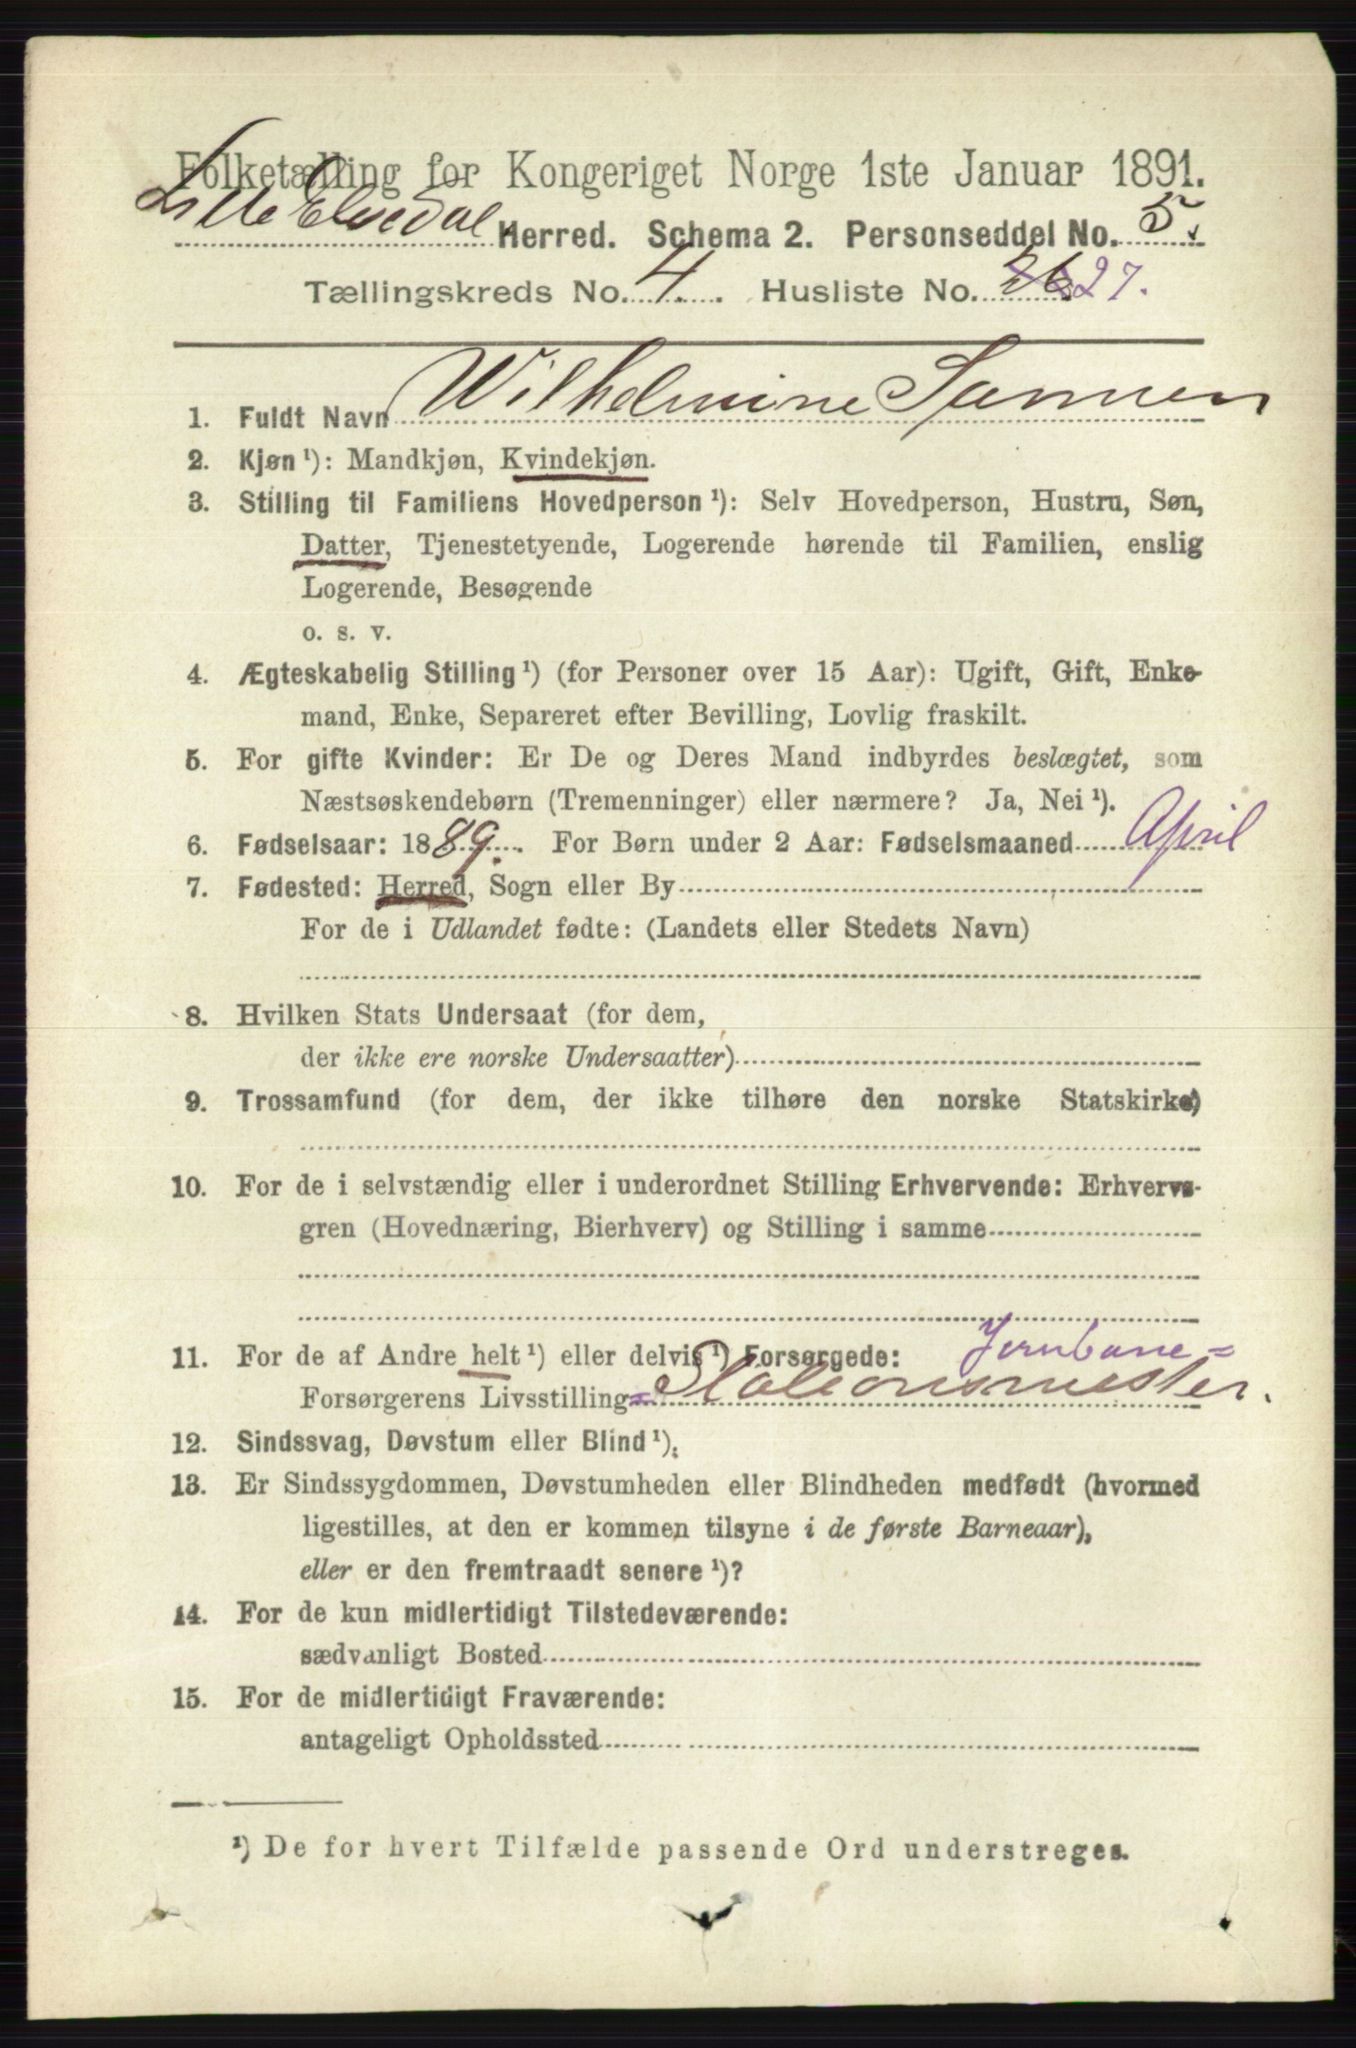 Folketælling for Kongeriget Norge 1ste Januar 1891.
Lille Elvedal Herred. Schema 2. Personseddel No. 5.
Tællingskreds No. 4. Husliste No. 26 27.
1. Fuldt Navn Wilhelmine
2. Kjøn ¹): Mandkjøn, Kvindekjøn.
3. Stilling til Familiens Hovedperson ¹): Selv Hovedperson, Hustru, Søn,
Datter, Tjenestetyende, Logerende hørende til Familien, enslig
Logerende, Besøgende
o. s. v.
4. Ægteskabelig Stilling ¹) (for Personer over 15 Aar): Ugift, Gift, Enke-
mand, Enke, Separeret efter Bevilling, Lovlig fraskilt.
5. For gifte Kvinder: Er De og Deres Mand indbyrdes beslægtet, som
Næstsøskendebørn (Tremenninger) eller nærmere? Ja, Nei ¹).
6. Fødselsaar: 1889. For Børn under 2 Aar: Fødselsmaaned April
7. Fødested: Herred, Sogn eller By
For de i Udlandet fødte: (Landets eller Stedets Navn)
8. Hvilken Stats Undersaat (for dem,
der ikke ere norske Undersaatter)
9. Trossamfund (for dem, der ikke tilhøre den norske Statskirke)
10. For de i selvstændig eller i underordnet Stilling Erhvervende: Erhvervs-
gren (Hovednæring, Bierhverv) og Stilling i samme
11. For de af Andre helt ¹) eller delvis ¹) Forsørgede: Jernbane=
Forsørgerens Livsstilling= Stationsmester.
12. Sindssvag, Døvstum eller Blind ¹).
13. Er Sindssygdommen, Døvstumheden eller Blindheden medfødt (hvormed
ligestilles, at den er kommen tilsyne i de første Barneaar),
eller er den fremtraadt senere ¹)?
14. For de kun midlertidigt Tilstedeværende:
sædvanligt Bosted
15. For de midlertidigt Fraværende:
antageligt Opholdssted
¹) De for hvert Tilfælde passende Ord understreges.